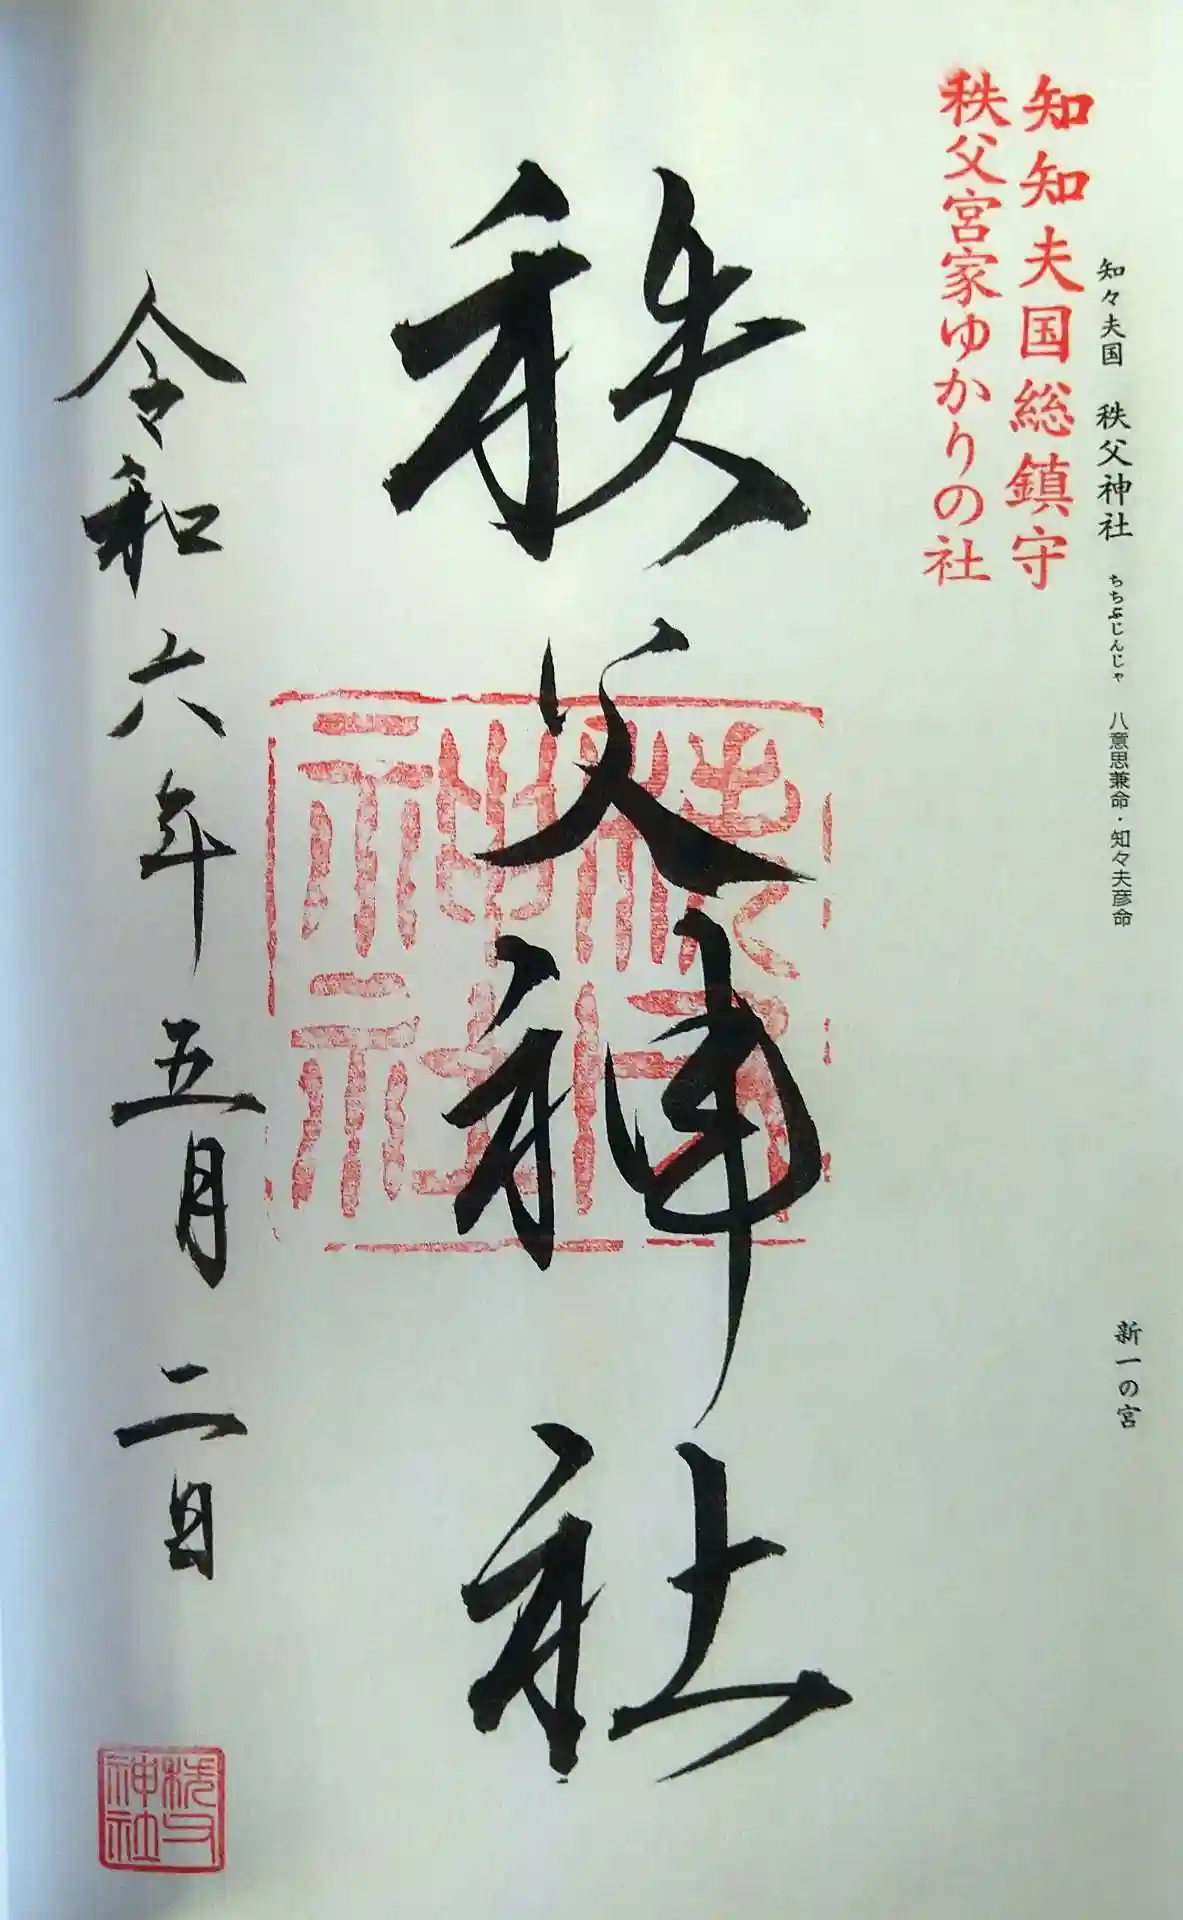 知々夫国 秩父神社 ちちぶじんじゃ 八意思兼命・知々夫彦命
新一の宮
知知夫国総鎮守
秩父宮家ゆかりの社
秩父神社
秩父神社
令和六年五月二日
秩父神社